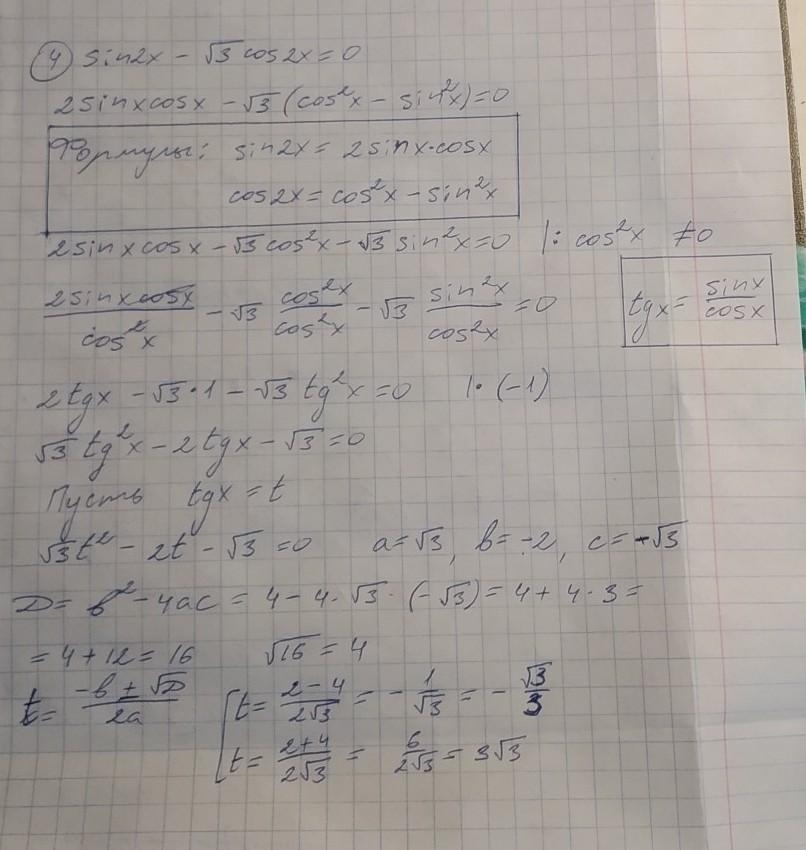 ④ sin2x − √3 cos2x = 0
2sinxcosx − √3 (cos²x − sin²x) = 0
Формулы: sin2x = 2sinx·cosx
cos2x = cos²x − sin²x
2sinxcosx − √3cos²x − √3 sin²x = 0 |: cos²x ≠ 0
2sinxcosx/cos²x − √3 cos²x/cos²x − √3 sin²x/cos²x = 0
tgx = sinx/cosx
2tgx − √3·1 − √3 tg²x = 0 |· (−1)
√3 tg²x − 2tgx − √3 = 0
Пусть tgx = t
√3t² − 2t − √3 = 0 a=√3, b=−2, c=−√3
D = b² − 4ac = 4 − 4·√3·(−√3) = 4 + 4·3 =
= 4 + 12 = 16 √16 = 4
t = (−b ± √D)/2a
[t = (2−4)/2√3 = −1/√3 = −√3/3
t = (2+4)/2√3 = 6/2√3 = 3√3